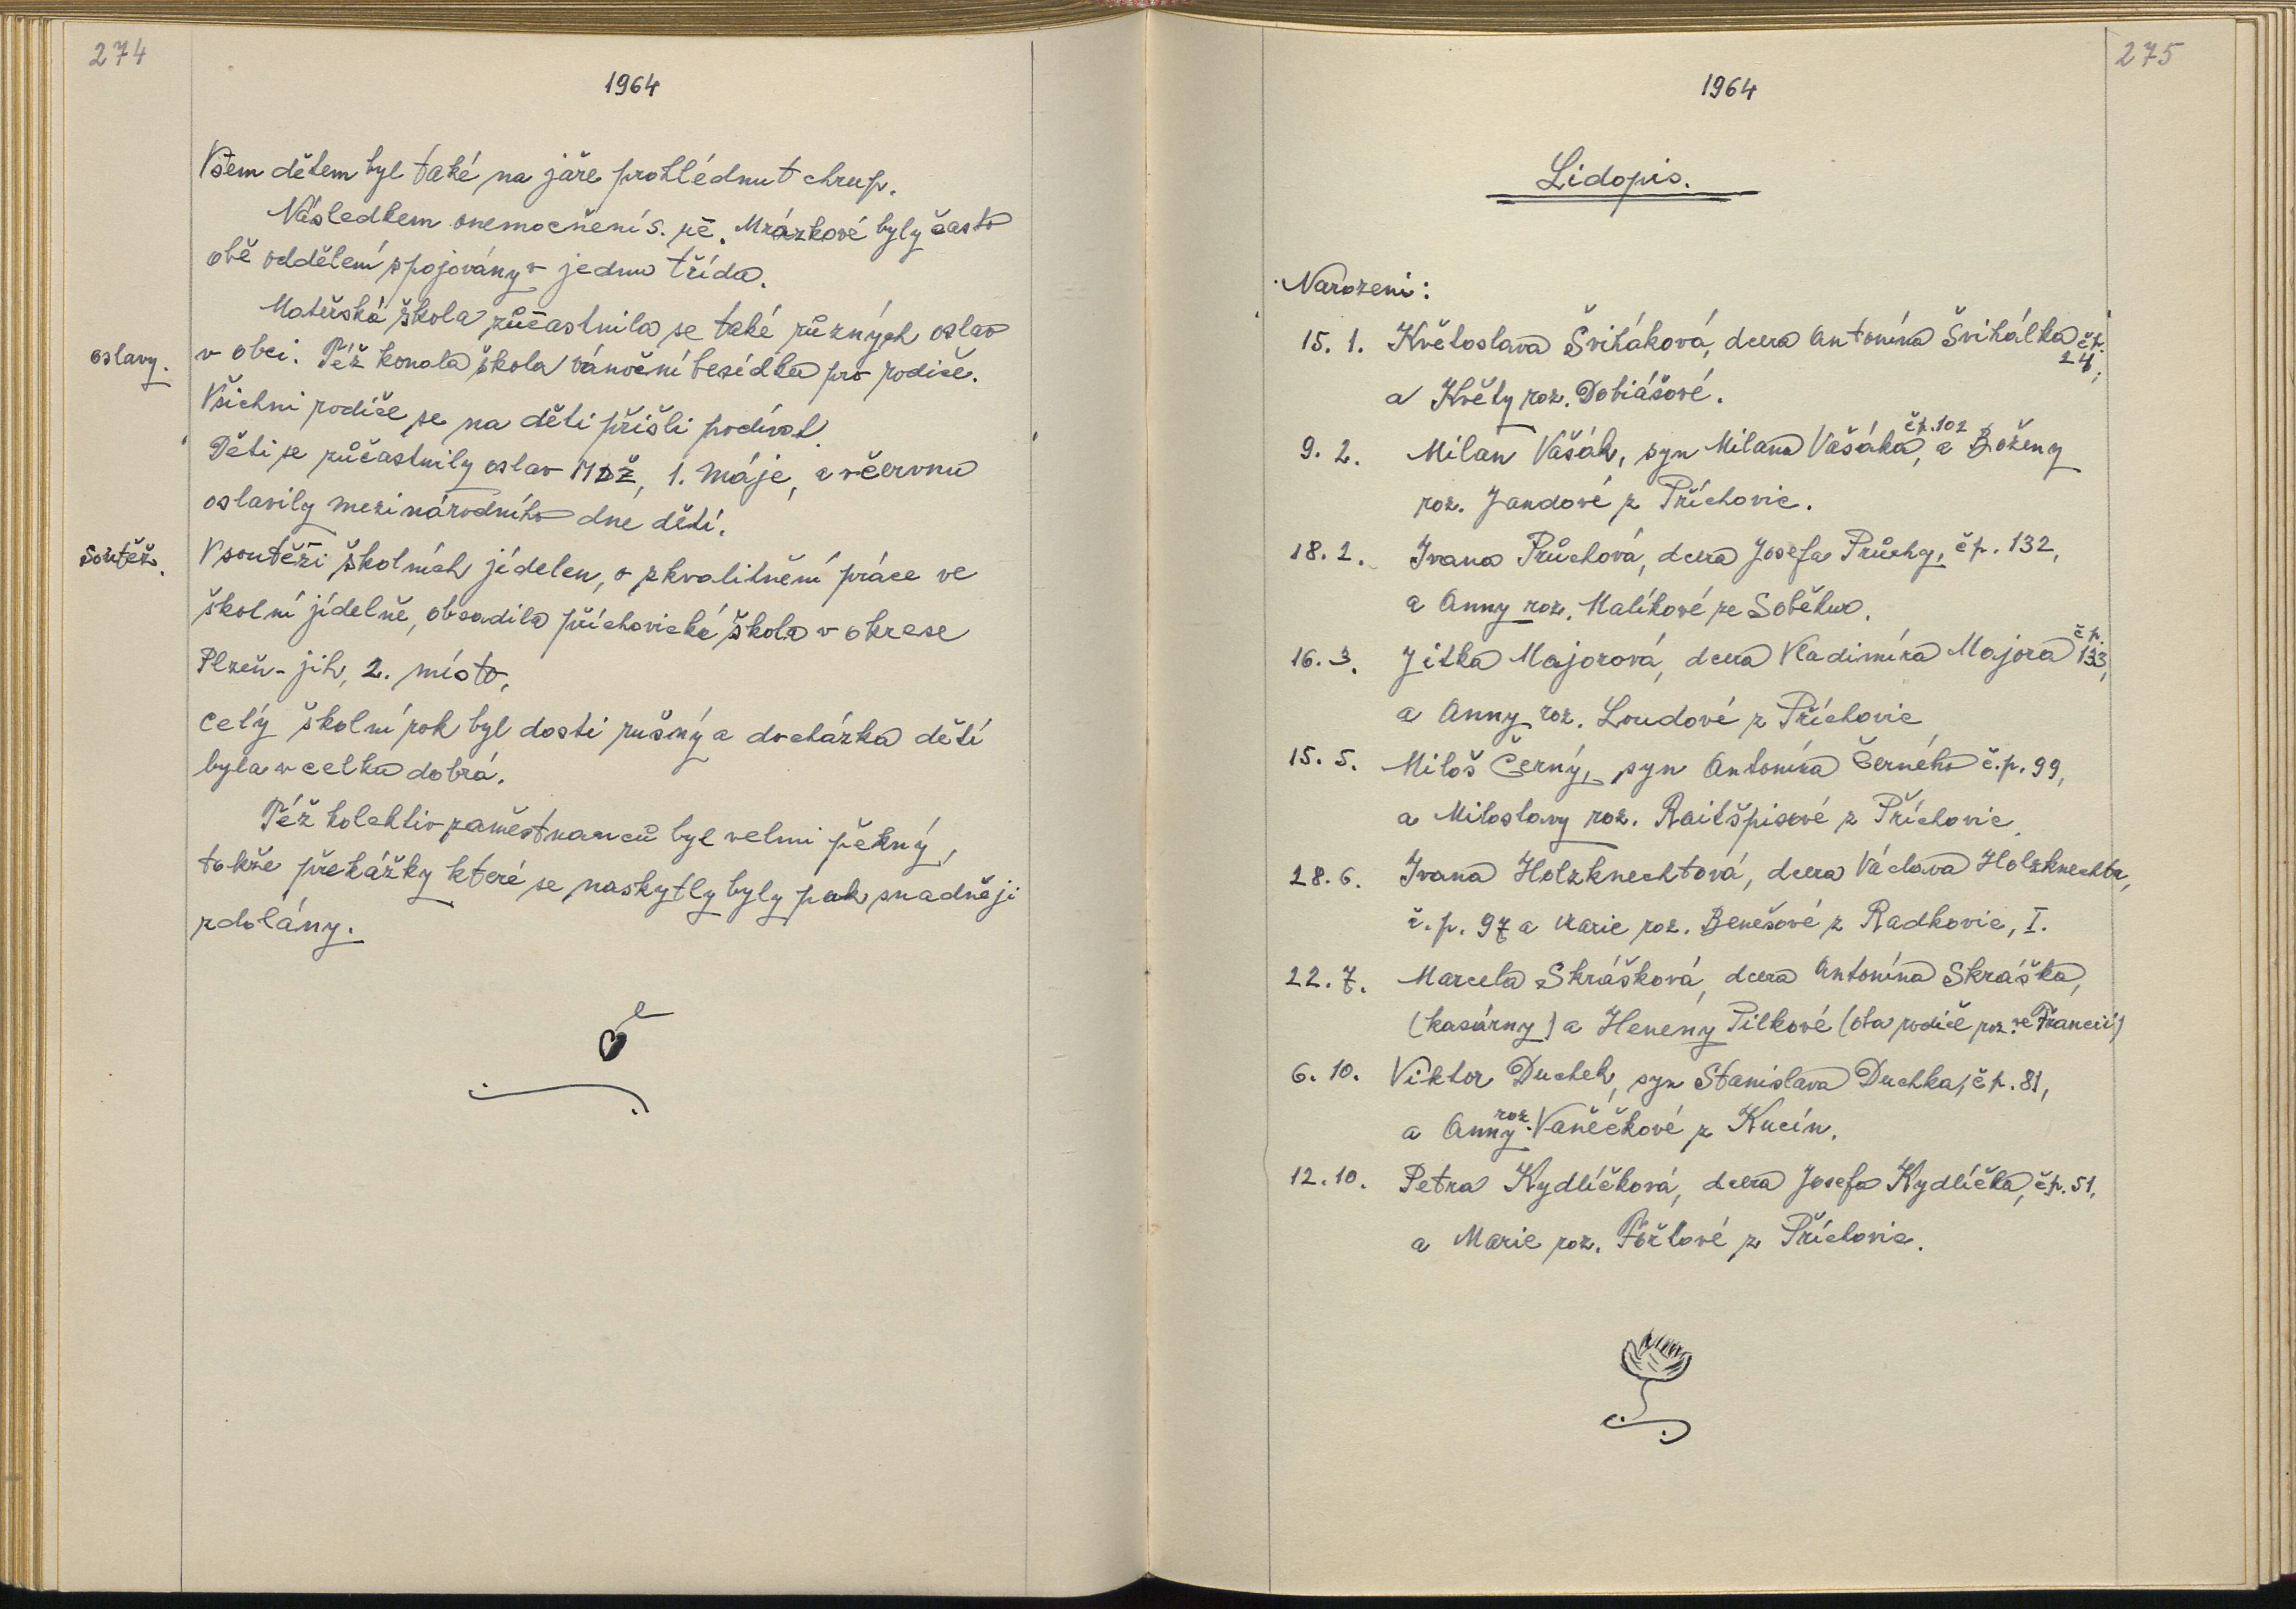 274
1964
Všem dětem byl také na jáře prohlédnut chrup.
Následkem onemocnění s. uč. Mrázkové byly často
obě oddělení spojovány v jednu třída.
Mateřská škola zůčastnila se také různých oslav
oslavy.
v obci. Též konala škola vánoční besídka pro rodiče.
Všichni rodiče se na děti přišli podívat.
Děti se zůčastnily oslav MDŽ, 1. Máje, a včervnu
oslavily mezinárodního dne dětí.
Soutěž.
V soutěži školních jídelen, o zkvalitnění práce ve
školní jídelně, obsadila příchovická škola v okrese
Plzeň-jih, 2. místo.
Celý školní rok byl dosti rušný a docházka dětí
byla v celku dobrá.
Též kolektiv zaměstnanců byl velmi pěkný,
takže překážky které se naskytly byly pak snadněji
zdolány.
275
1964
Lidopis.
Narozeni:
15. 1. Květoslava Šviháková, dcera Antonína Švihálka čp.
24,
a Květy roz. Dobiášové.
9. 2. Milan Vašák, syn Milana Vašáka, čp. 102 a Boženy
roz. Jandové z Příchovic.
18. 2. Ivana Průchová, dcera Josefa Průchy, čp. 132,
a Anny roz. Malíkové ze Soběkur.
16. 3. Jitka Majorová, dcera Vladimíra Majora čp. 133,
a Anny roz. Loudové z Příchovic
15. 5. Miloš Černý, syn Antonína Černého č.p. 99,
a Miloslavy roz. Raitšpisové z Příchovic.
28. 6. Ivana Holzknechtová, dcera Václava Holzknechta,
č.p. 97 a Marie roz. Benešové z Radkovic, I.
22. 7. Marcela Skrášková, dcera Antonína Skráška,
(kasárny) a Heneny Pilkové (oba rodiče roz. ve Francii)
6. 10. Viktor Duchek, syn Stanislava Duchka, čp. 81,
a Anny roz. Vaněčkové z Kucín.
12. 10. Petra Kydlíčková, dcera Josefa Kydlíčka, čp. 51,
a Marie roz. Förtlové z Příchovic.